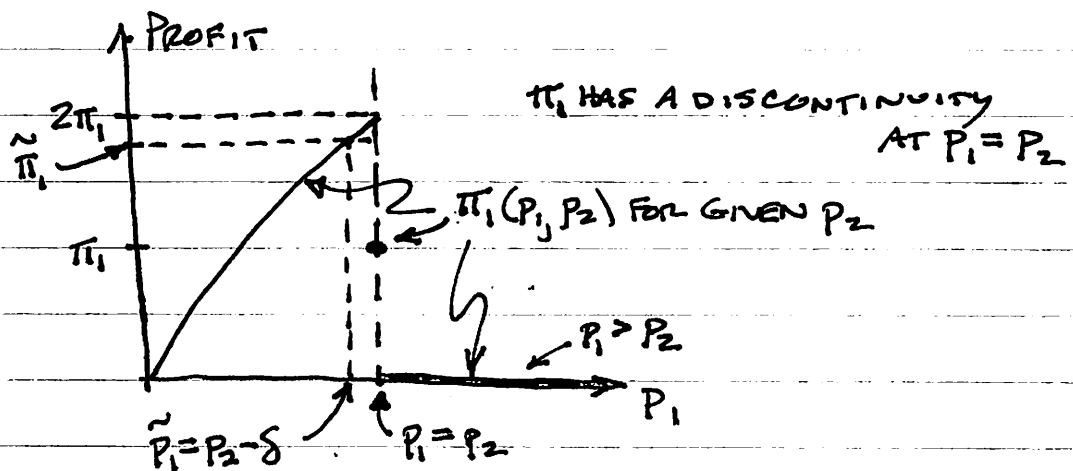 PROFIT
π₁ HAS A DISCONTINUITY
AT P₁ = P₂
2π₁
π̃₁
π₁(P₁, P₂) FOR GIVEN P₂
π₁
P₁ > P₂
P₁
P̃₁ = P₂ - δ
P₁ = P₂